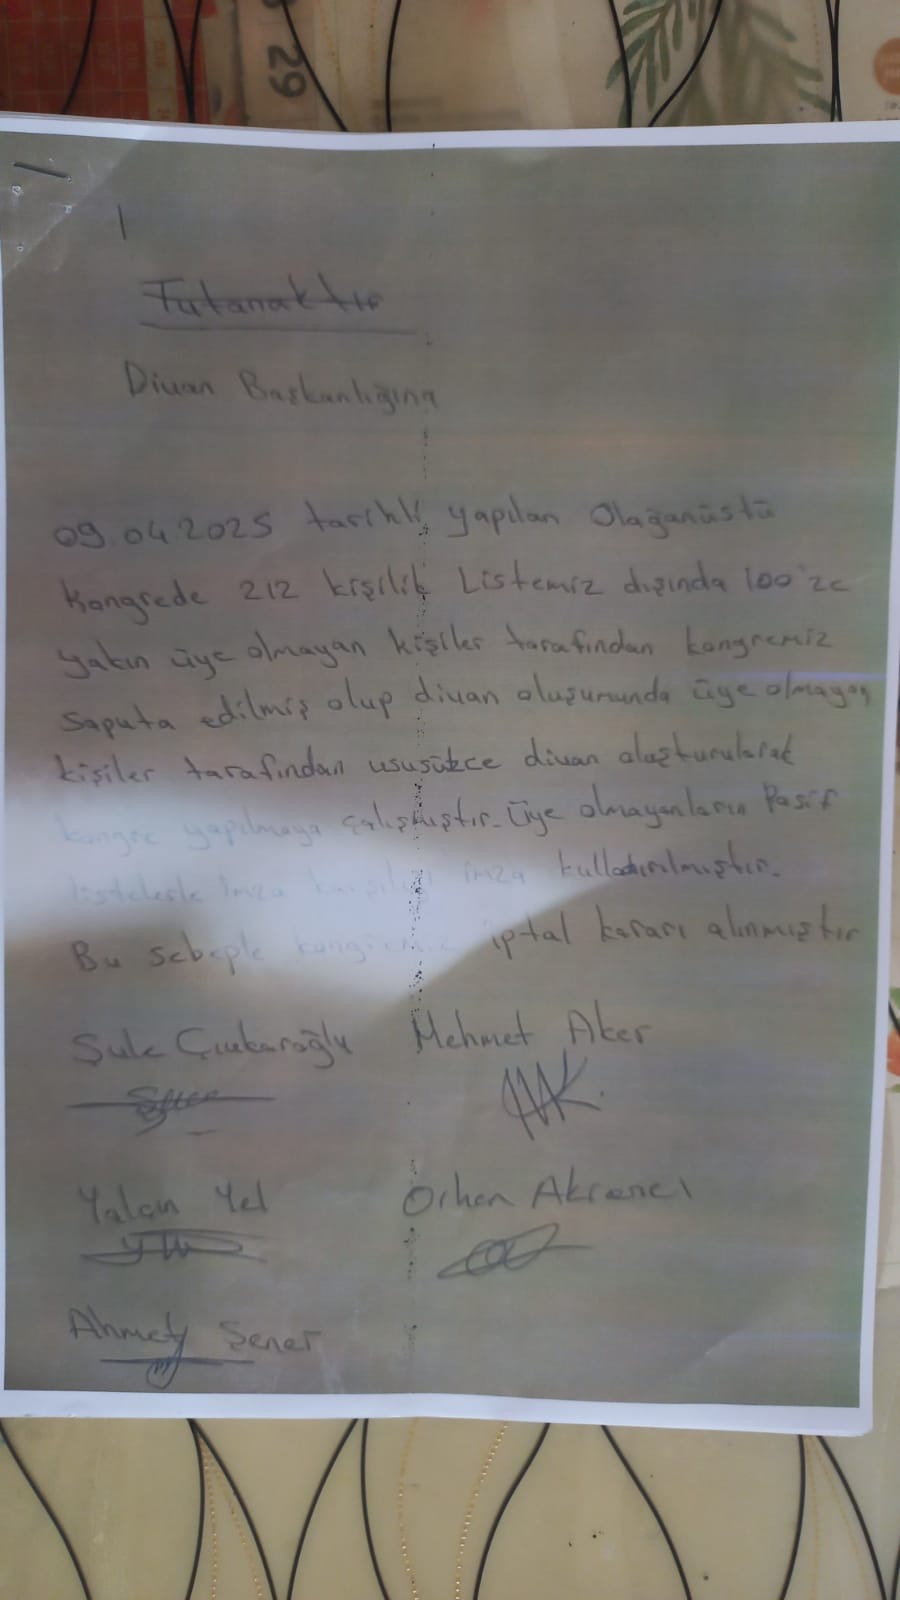 29
Tutanaktır
Divan Başkanlığına
09.04.2025 tarihli yapılan Olağanüstü
Kongrede 212 kişilik Listemiz dışında 100'ze
yakın üye olmayan kişiler tarafından kongremiz
Saputa edilmiş olup divan oluşumunda üye olmayan
kişiler tarafından ususüzce divan oluşturularak
kongre yapılmaya çalışmıştır. Üye olmayanların Pasif
listelerle imza karşılığı imza kullandırılmıştır.
Bu sebeple kongremiz iptal kararı alınmıştır
Şule Mehmet Aker
Yalçın Yel Orhan
Ahmet Şener